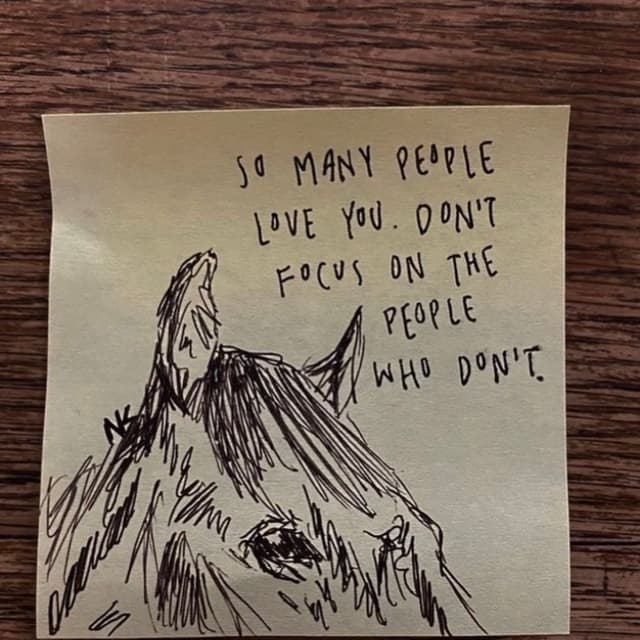 SO MANY PEOPLE
LOVE YOU. DON'T
FOCUS ON THE
PEOPLE
WHO DON'T.
NK